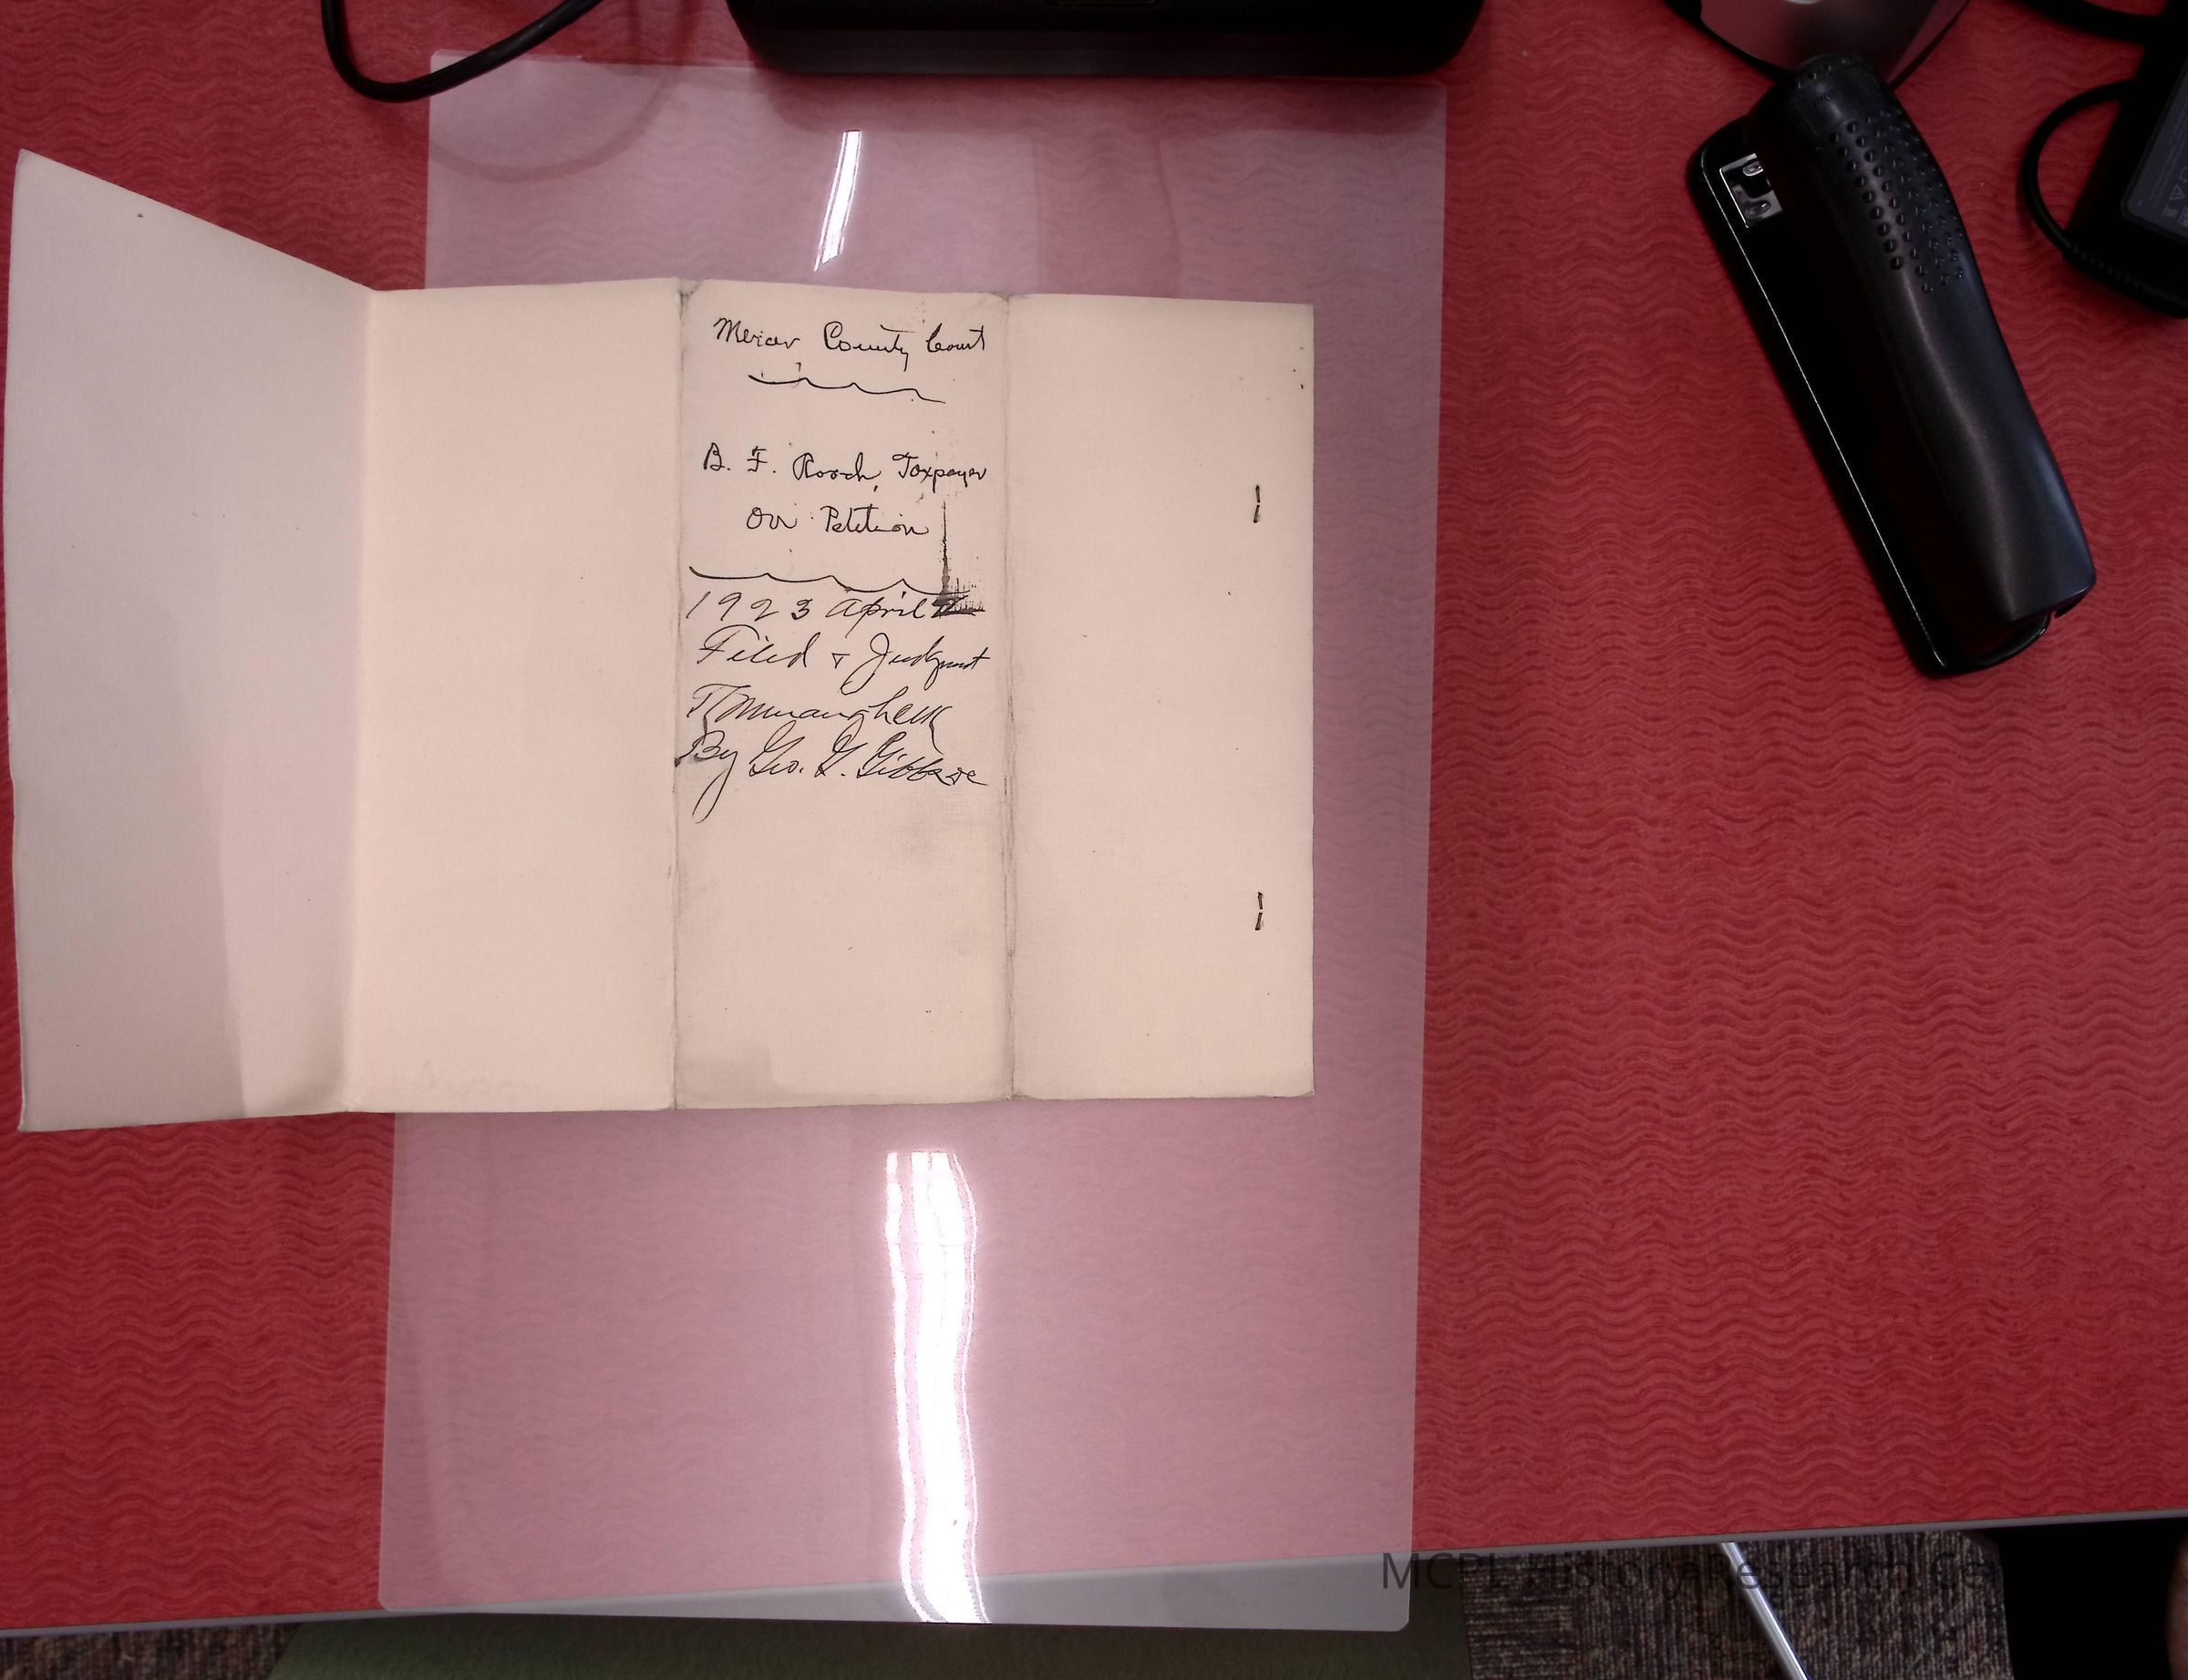 Mercer County Court
B. F. Roach, Taxpayer
On Petition
1923 April
Filed & Judgment
By Geo. G. Gibbs DC
MCPL History Research Cen